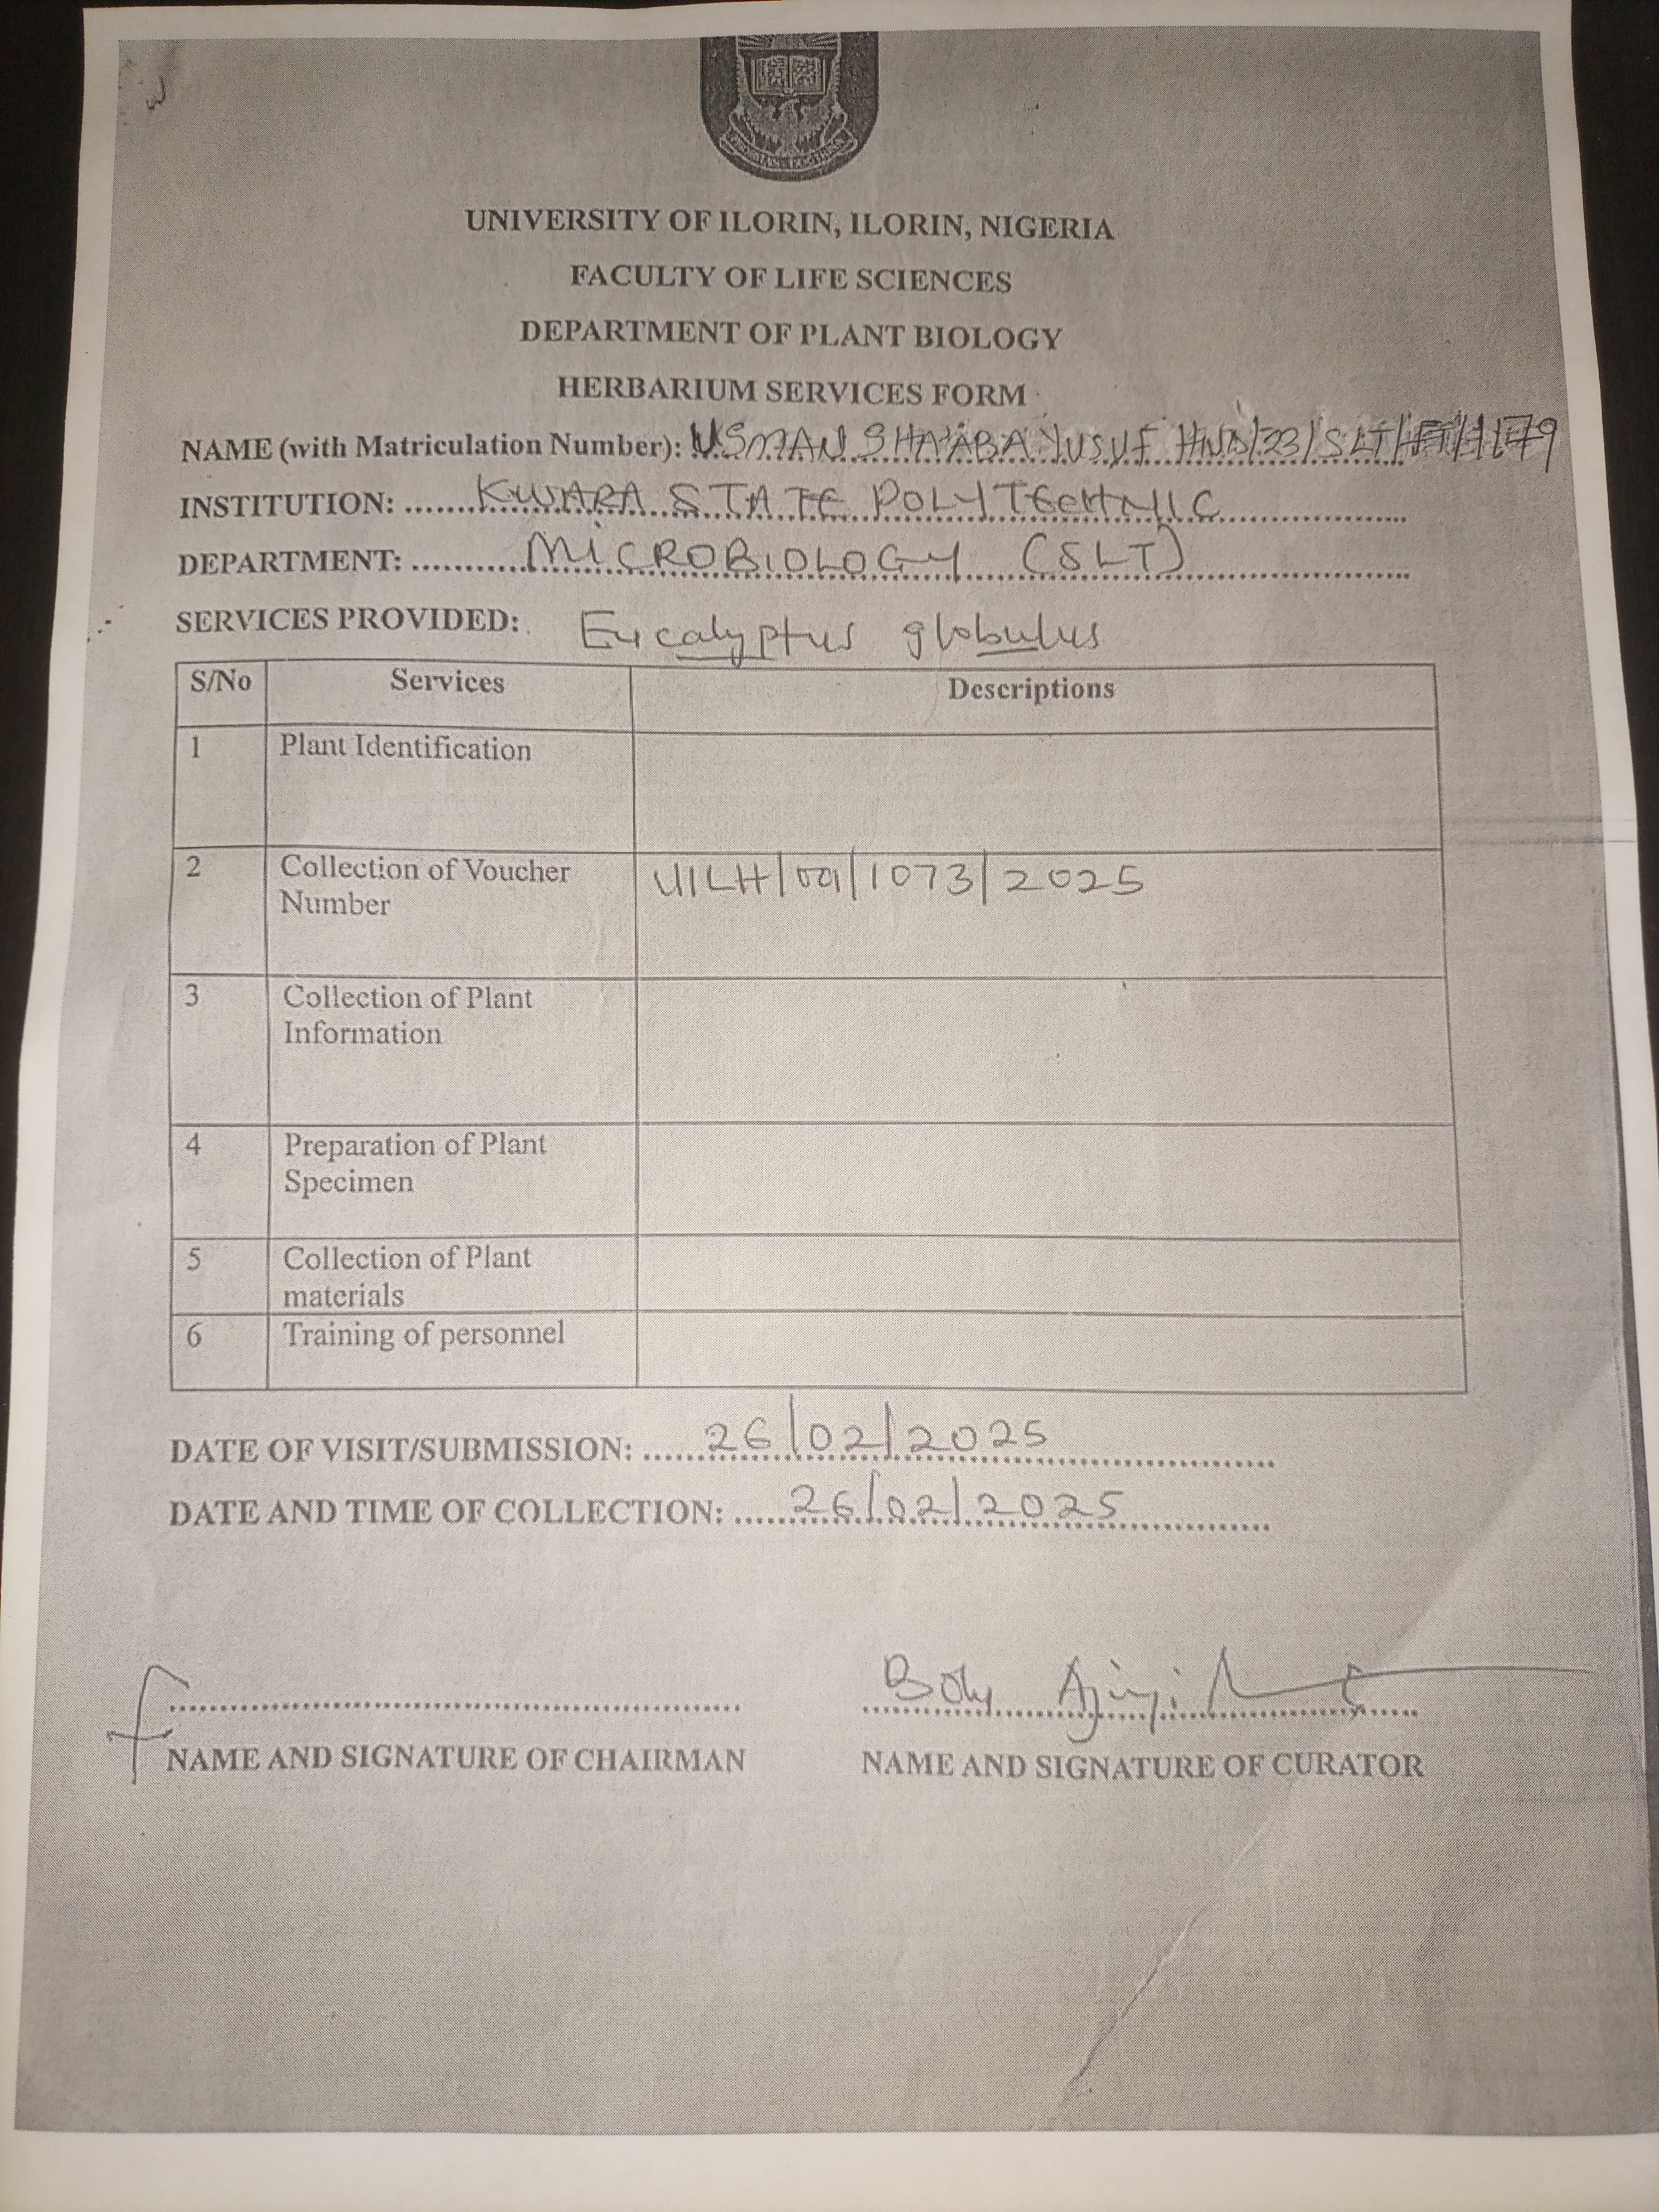 UNIVERSITY OF ILORIN, ILORIN, NIGERIA
FACULTY OF LIFE SCIENCES
DEPARTMENT OF PLANT BIOLOGY
HERBARIUM SERVICES FORM
NAME (with Matriculation Number): USMAN SHA'ABA YUSUF HND/23/SLT/FT/1179
INSTITUTION: KWARA STATE POLYTECHNIC
DEPARTMENT: MICROBIOLOGY (SLT)
SERVICES PROVIDED: Eucalyptus globulus
S/No Services Descriptions
1 Plant Identification
2 Collection of Voucher UILH/001/1073/2025
Number
3 Collection of Plant
Information
4 Preparation of Plant
Specimen
5 Collection of Plant
materials
6 Training of personnel
DATE OF VISIT/SUBMISSION: 26/02/2025
DATE AND TIME OF COLLECTION: 26/02/2025
NAME AND SIGNATURE OF CHAIRMAN NAME AND SIGNATURE OF CURATOR